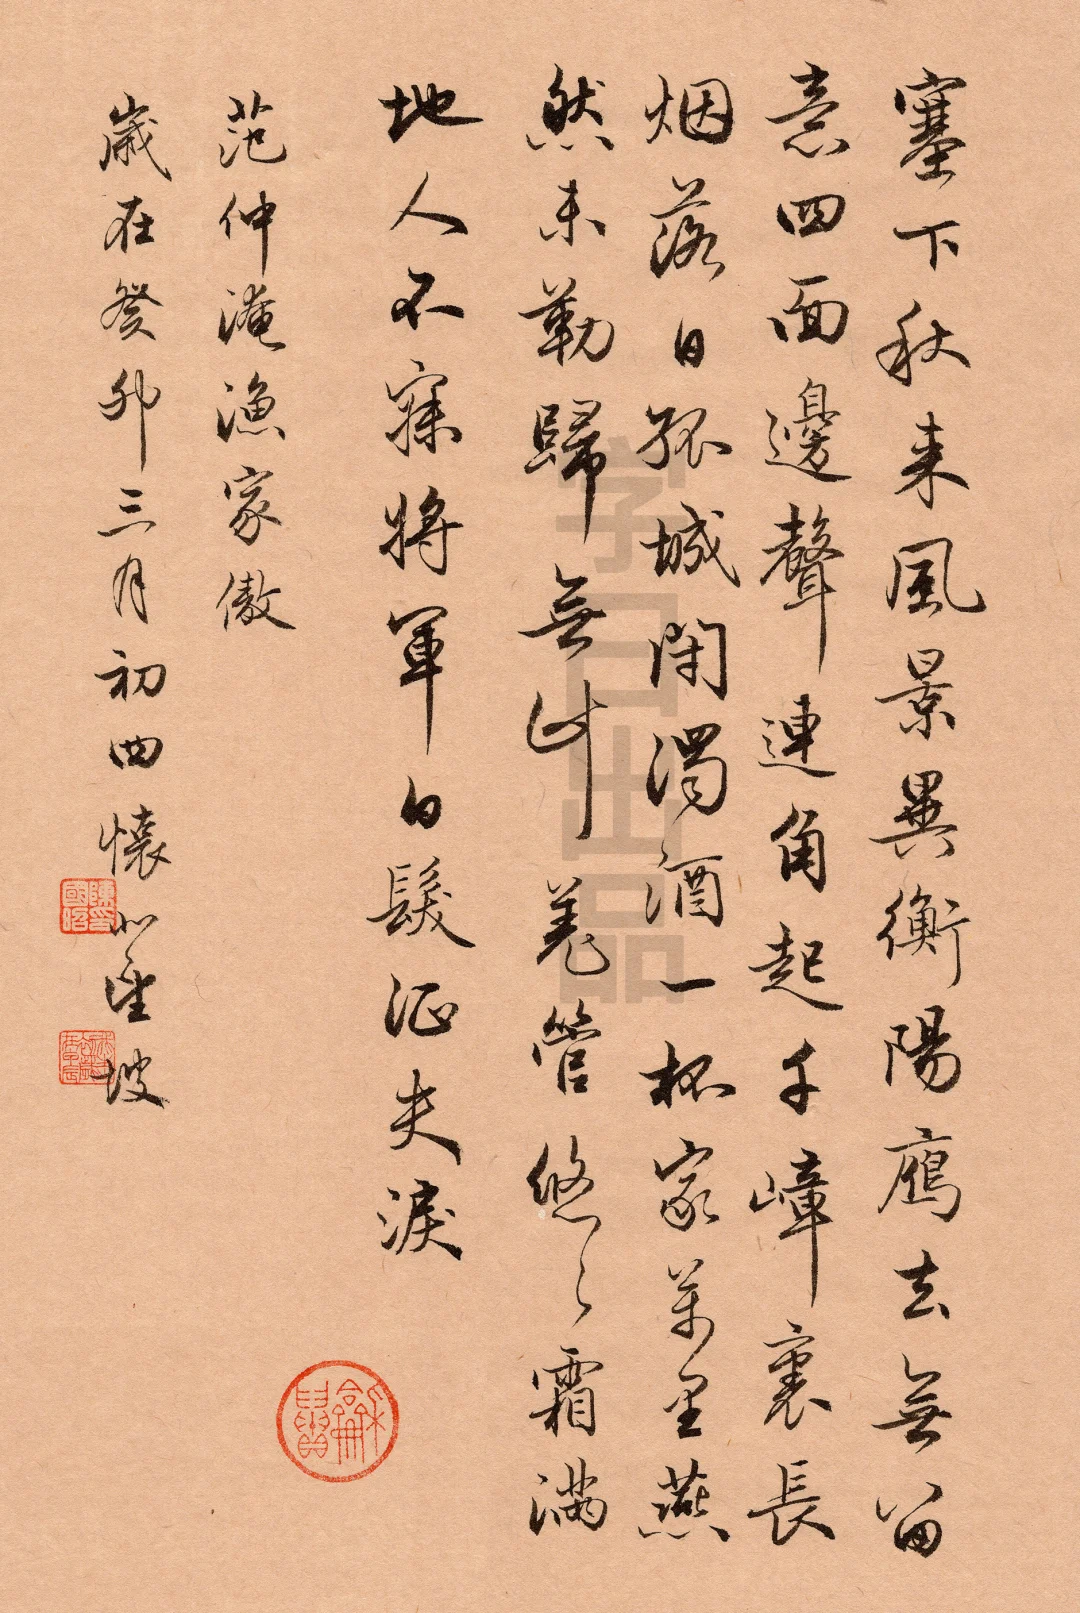 塞下秋来風景異衡陽鴈去無留
意四面邊聲連角起千嶂裏長
烟落日孤城閉濁酒一杯家萬里燕
然未勒歸無計羌管悠〻霜满
地人不寐将軍白髮征夫淚
范仲淹漁家傲
歲在癸卯三月初四懷心望坡
字口出品